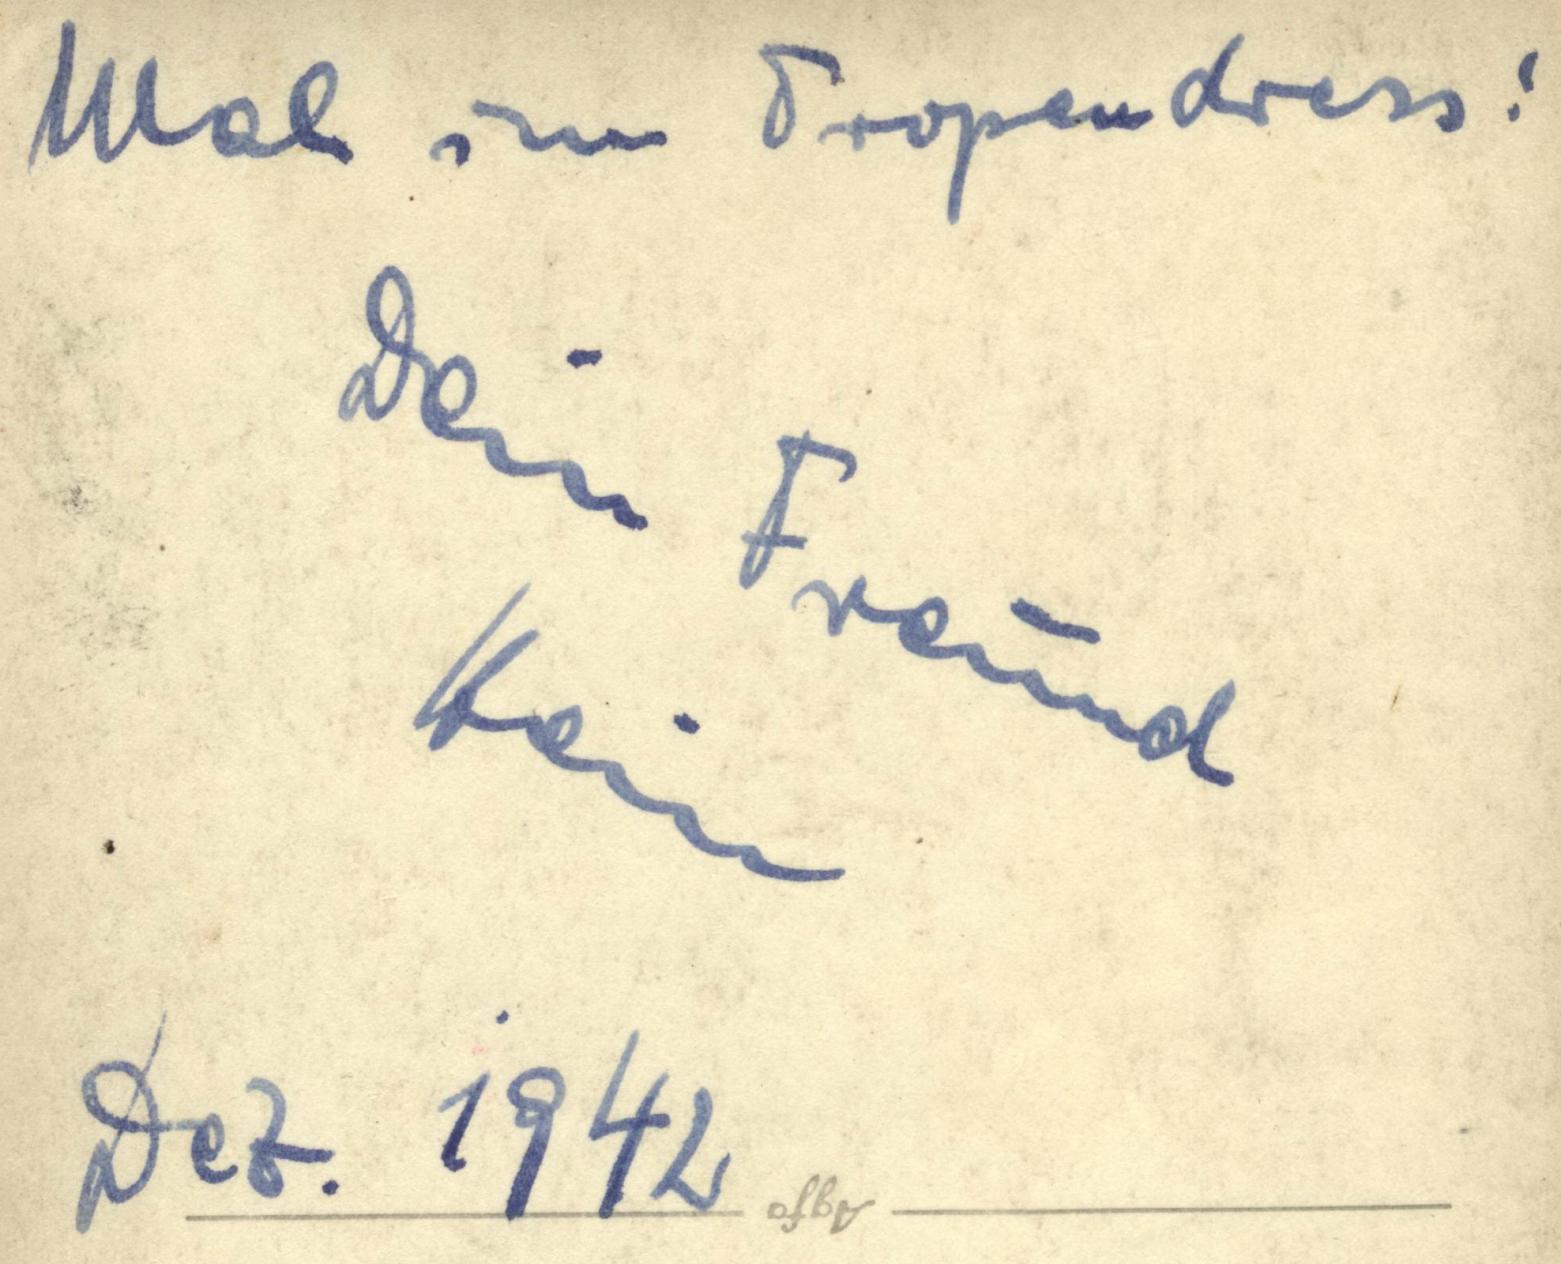 Mal im Tropendress!
Dein Freund
Hein
Dez. 1942
Agfa